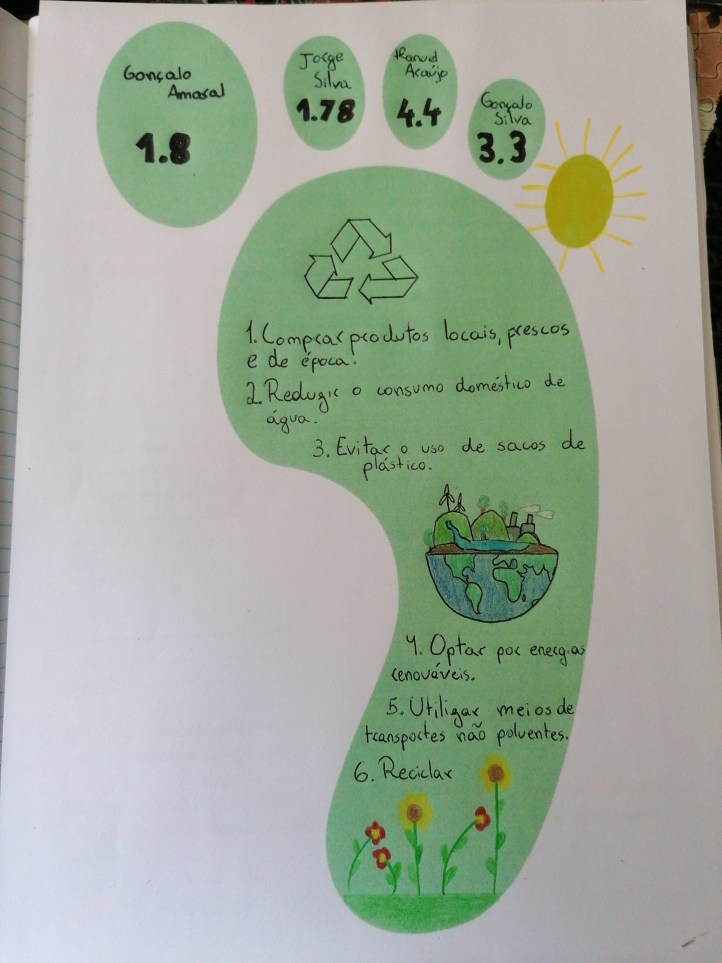 Gonçalo
Amaral
1.8
Jorge
Silva
1.78
Manuel
Araújo
4.4
Gonçalo
Silva
3.3
1. Comprar produtos locais, frescos
e de época.
2. Reduzir o consumo doméstico de
água.
3. Evitar o uso de sacos de
plástico.
4. Optar por energias
renováveis.
5. Utilizar meios de
transportes não poluentes.
6. Reciclar